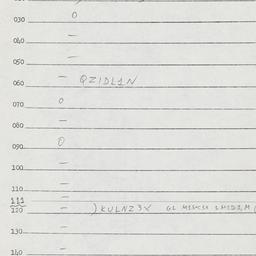 030 O
040 —
050 —
— QZIDL1N
060
070 O
080 —
090 O
100 —
110 —
111 —
120 — )KULNZ3X GL
130 —
140 —